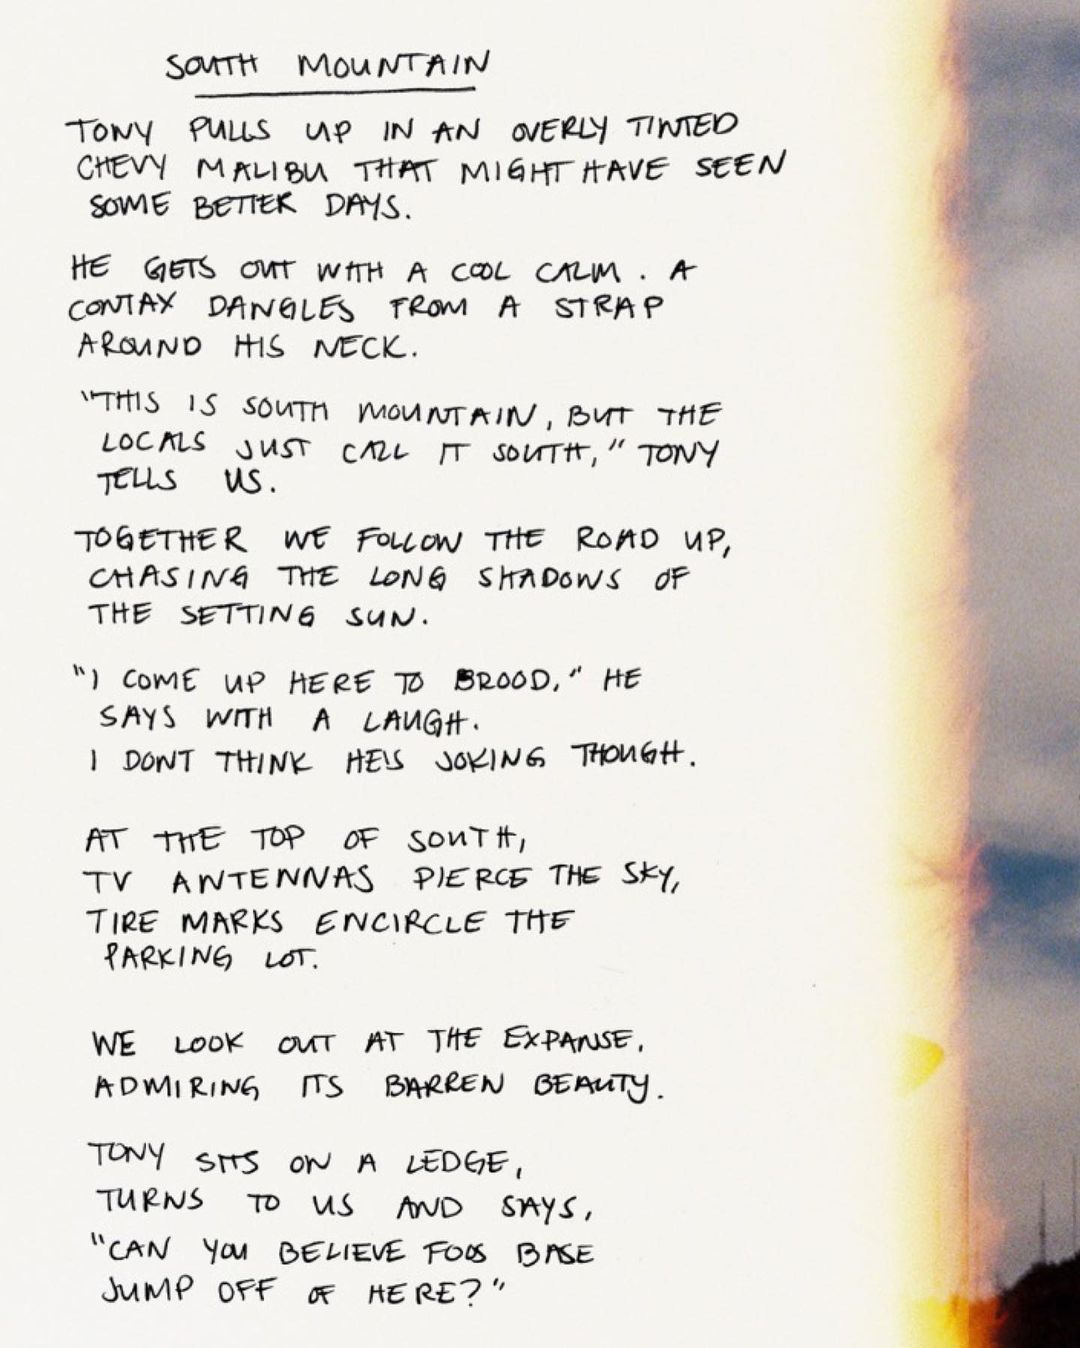 SOUTH MOUNTAIN
TONY PULLS UP IN AN OVERLY TINTED
CHEVY MALIBU THAT MIGHT HAVE SEEN
SOME BETTER DAYS.
HE GETS OUT WITH A COOL CALM. A
CONTAX DANGLES FROM A STRAP
AROUND HIS NECK.
"THIS IS SOUTH MOUNTAIN, BUT THE
LOCALS JUST CALL IT SOUTH," TONY
TELLS US.
TOGETHER WE FOLLOW THE ROAD UP,
CHASING THE LONG SHADOWS OF
THE SETTING SUN.
"I COME UP HERE TO BROOD," HE
SAYS WITH A LAUGH.
I DONT THINK HE'S JOKING THOUGH.
AT THE TOP OF SOUTH,
TV ANTENNAS PIERCE THE SKY,
TIRE MARKS ENCIRCLE THE
PARKING LOT.
WE LOOK OUT AT THE EXPANSE,
ADMIRING ITS BARREN BEAUTY.
TONY SITS ON A LEDGE,
TURNS TO US AND SAYS,
"CAN YOU BELIEVE FOOS BASE
JUMP OFF OF HERE?"